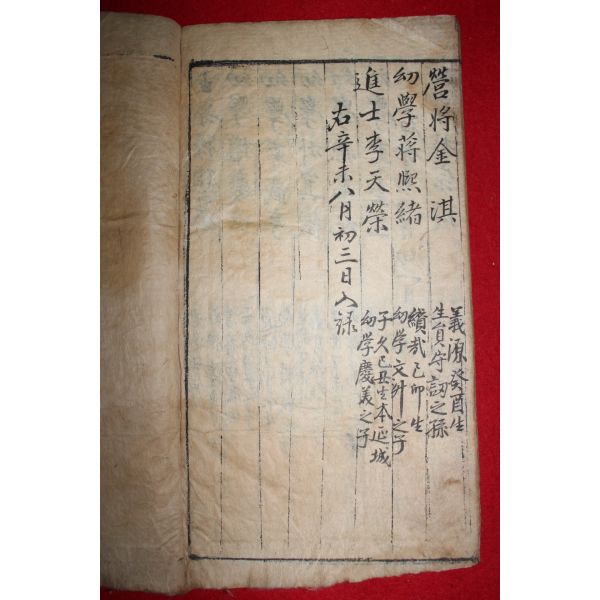 營將金 淇
義源癸酉生
生員守訒之孫
幼學蔣熙緖
纘哉己卯生
幼學文升之子
進士李天榮
子久己丑生本延城
幼學慶義之子
右辛未八月初三日入錄